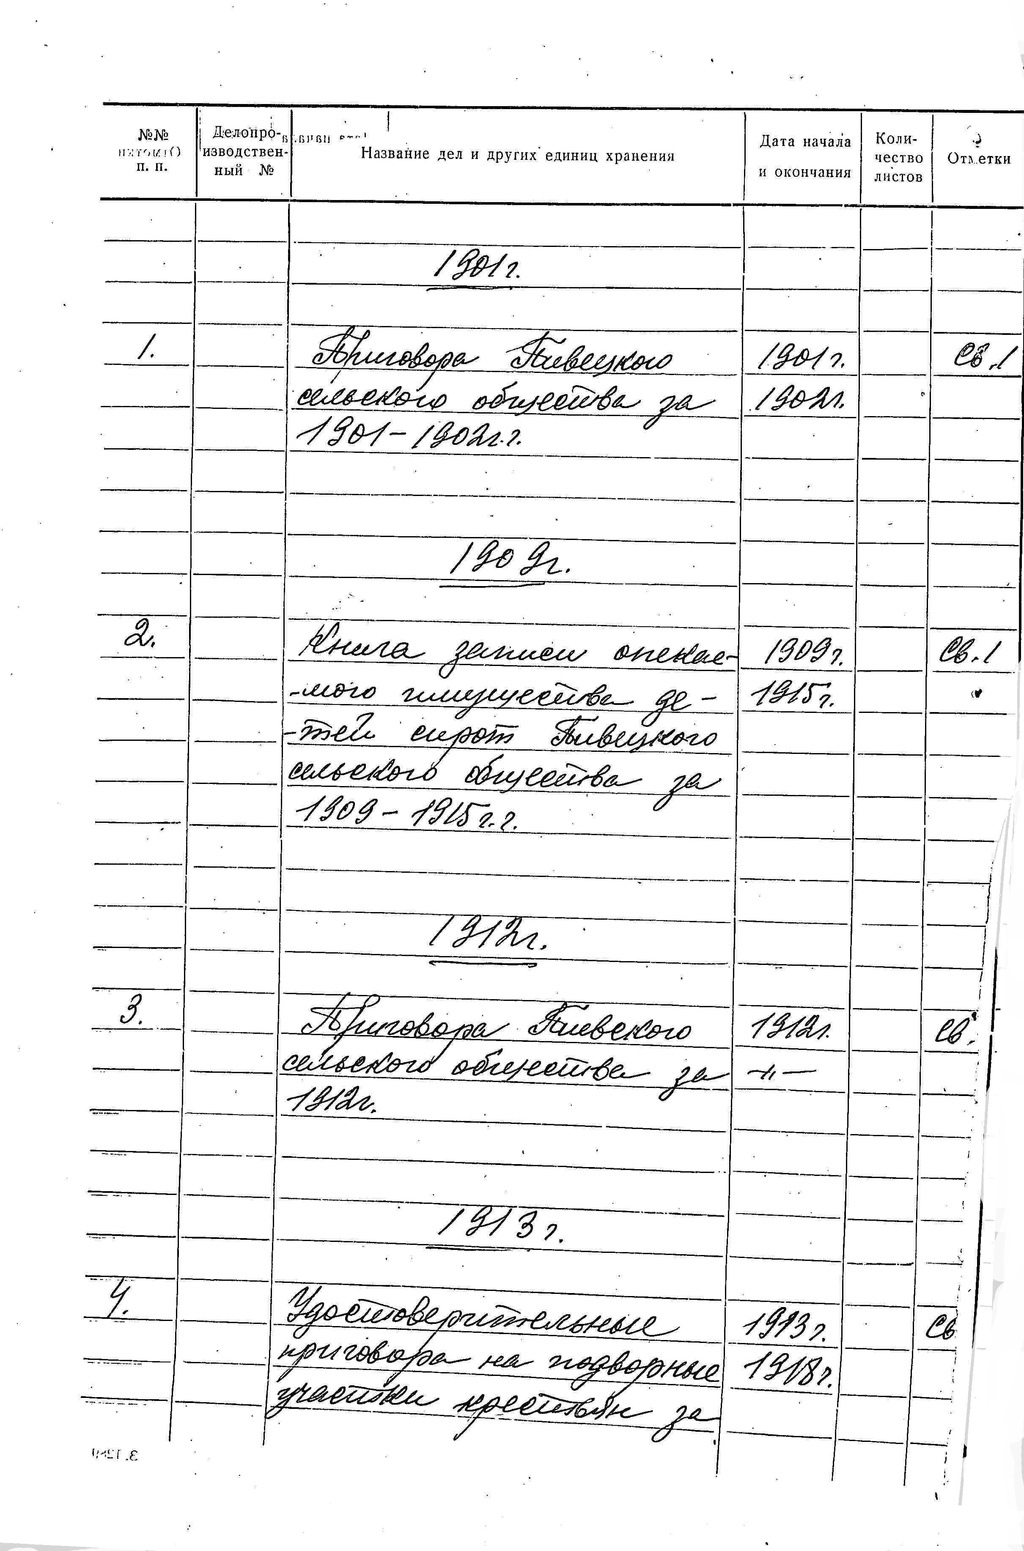 №№ п. п.
Делопроизводствен- ный №
Название дел и других единиц хранения
Дата начала и окончания
Коли- чество листов
Отметки
1901г.
1. Приговора Пивецкого 1901г. Св.1
сельского общества за 1902г.
1901-1902г.г.
1909г.
2. Книга записи опекае- 1909г. Св.1
-мого имущества де- 1915г. "
-тей сирот Пивецкого
сельского общества за
1909-1915г.г.
1912г.
3. Приговора Пиевского 1912г. Св.
сельского общества за -"-
1912г.
1913г.
4. Удостоверительные 1913г. Св
приговора на подворные 1918г.
участки крестьян за